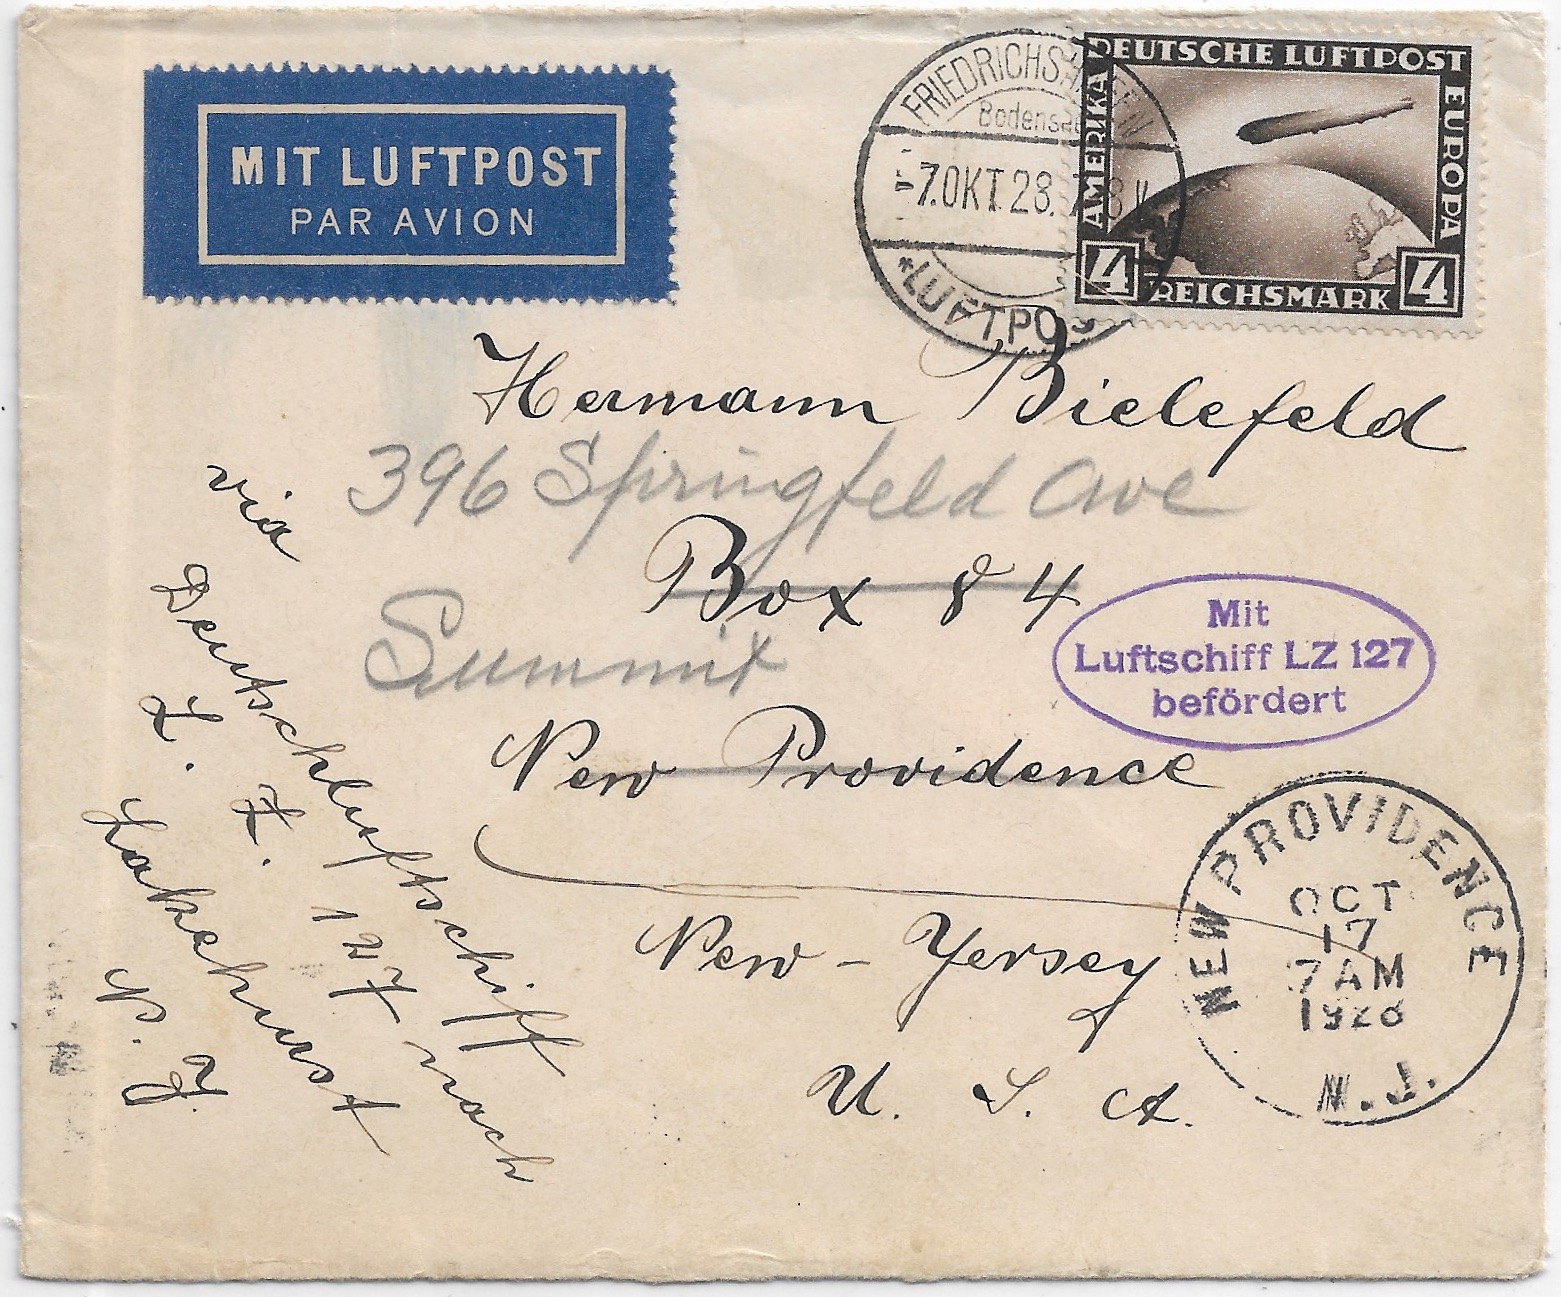 MIT LUFTPOST
PAR AVION
FRIEDRICHSHAFEN
Bodensee
-7.OKT.28.7-8V
*LUFTPOST
DEUTSCHE LUFTPOST
AMERIKA
EUROPA
4 REICHSMARK 4
Hermann Bielefeld
396 Springfeld Ave
Box 84
Summit
New Providence
New-Yersey
U. S. A.
via
Deutschluftschiff
L. Z. 127 nach
Lakehurst
N. Y.
Mit
Luftschiff LZ 127
befördert
NEW PROVIDENCE
OCT
17
7 AM
1928
N.J.